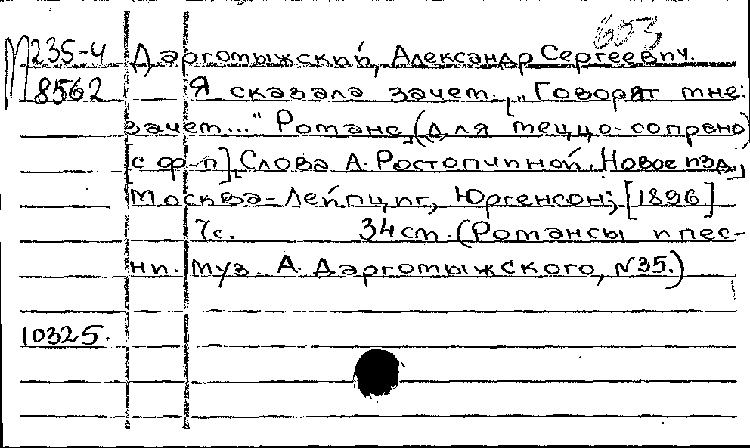 603
М 235-4 Даргомыжский, Александр Сергеевич.
8562 Я сказала зачем. [„Говорят мне:
зачем..." Романс. (Для меццо-сопрано)
[с ф-п]. Слова А. Ростопчиной. Новое изд.,
Москва-Лейпциг, Юргенсон, [1896]
7с. 34см. (Романсы и пес-
ни. Муз. А. Даргомыжского, N35.)
10325.